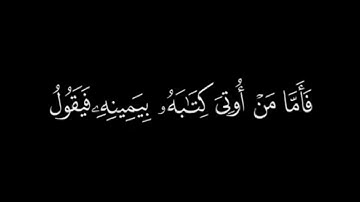 فَأَمَّا مَنْ أُوتِىَ كِتَٰبَهُۥ بِيَمِينِهِۦ فَيَقُولُ